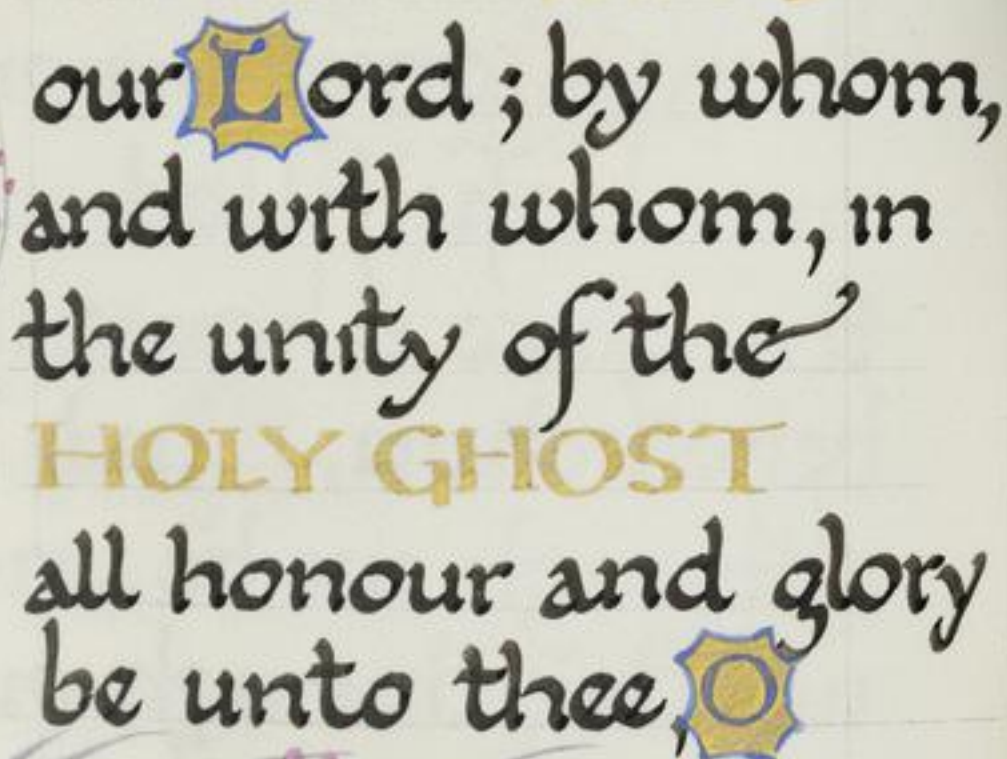 our Lord; by whom,
and with whom, in
the unity of the
HOLY GHOST
all honour and glory
be unto thee, O